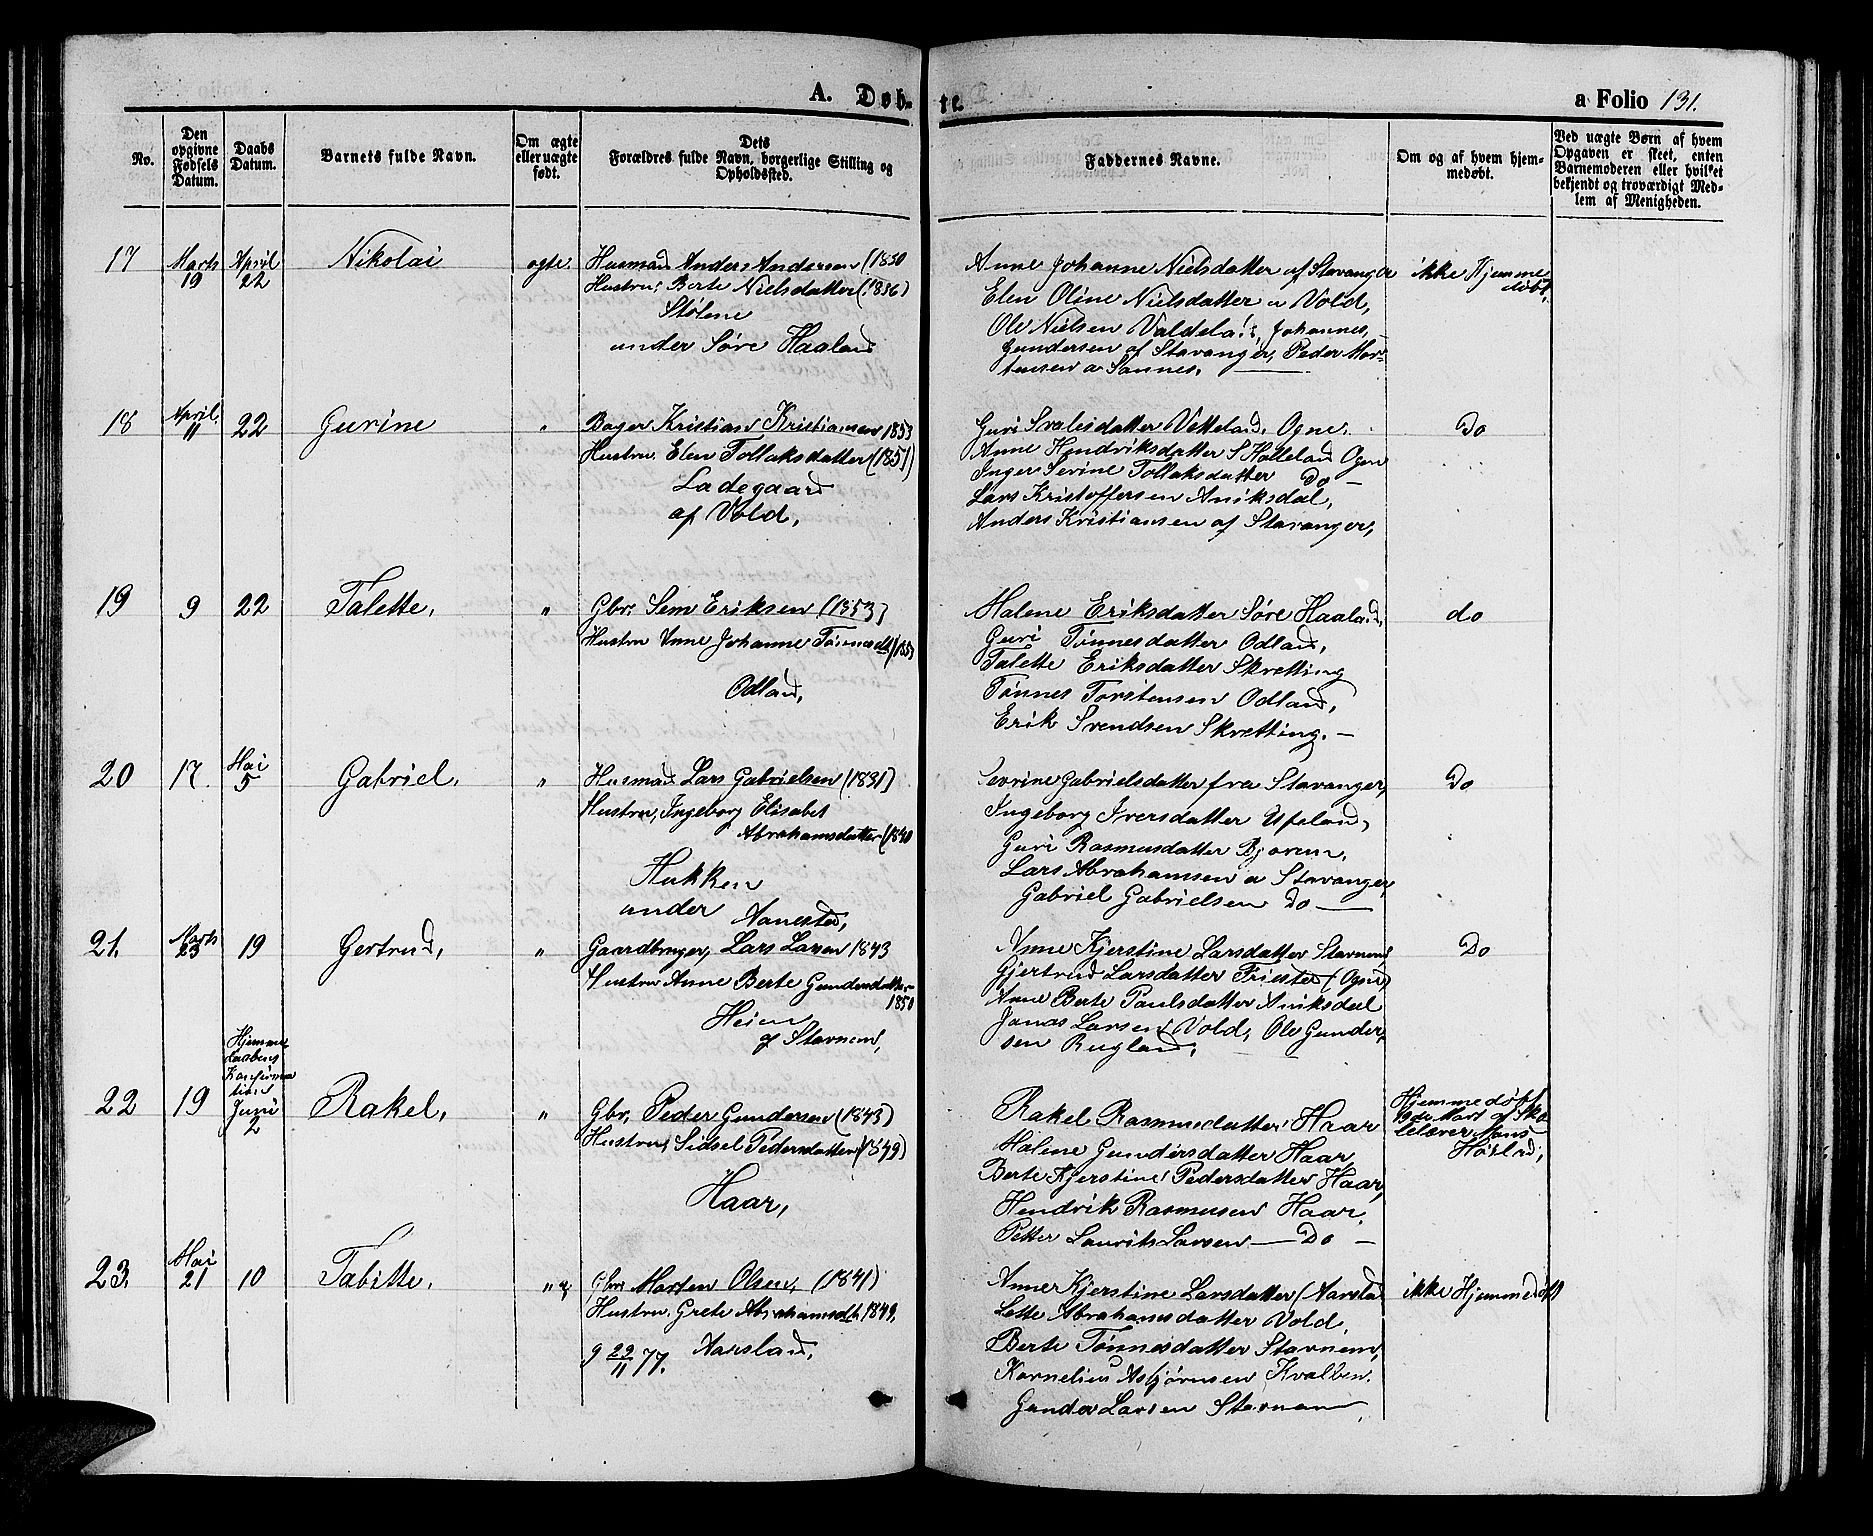 A. Døb-
te.
a Folio 131.
No.
Den opgivne Fødsels Datum.
Daabs Datum.
Barnets fulde Navn.
Om ægte eller uægte født.
Dets Forældres fulde Navn, borgerlige Stilling og Opholdssted.
Faddernes Navne.
Om og af hvem hjemmedøbt.
Ved uægte Børn af hvem Opgaven er skeet, enten Barnemoderen eller hvilket bekjendt og troværdigt Medlem af Menigheden.
17 Marts 19 April 22 Nikolai ogte.
Husmand Anders Andersen (1830
Hustru, Berte Nielsdatter (1836)
Stølene
under Søre Haaland
Anne Johanne Nielsdatter af Stavanger
Elen Oline Nielsdatter a Vold,
Ole Nielsen Valdeland, Johannes
Gundersen af Stavanger, Peder Mor-
tensen a Sannes.
ikke Hjemme
døbt,
18 April 11 22 Gurine "
Bager Kristian Kristiansen 1853
Hustru, Elen Tollaksdatter (1857)
Ladegaard
af Vold,
Guri Svalesdatter Vetteland, Ogne.
Anne Hendriksdatter S Hølleland Ogn
Inger Serine Tollaksdatter Do -
Lars Kristoffersen Aniksdal,
Anders Kristiansen af Stavanger,
Do
19 9 22 Talette, "
Gbr. Sem Eriksen (1853)
Hustru Anne Johanne Tønnesdtr 1853
Odland,
Malene Eriksdatter Søre Haaland,
Guri Tønnesdatter Odland,
Talette Eriksdatter Skretting
Tønnes Torstensen Odland,
Erik Svendsen Skretting. -
do
20 17. Mai 5 Gabriel, "
Husmand Lars Gabrielsen (1831)
Hustru, Ingeborg Elisabet
Abrahamsdatter (1840
Hukken
under Aanestad,
Sevrine Gabrielsdatter fra Stavanger,
Ingeborg Iversdatter Ueland,
Guri Rasmusdatter Bjorem,
Lars Abrahamsen a Stavanger,
Gabriel Gabrielsen Do
Do
21. Marts 23 19 Gertrud, "
Gaardbruger, Lars Larsen 1843
Hustru Anne Berte Gundersdatter
1850
Heien
af Stavnem,
Anne Kjerstine Larsdatter Stavnem
Gjertrud Larsdatter Friestad (Ogne)
Anne Berte Paulsdatter Aniksdal
Jonas Larsen Vold, Ole Gunder-
sen Rugland,
Do
Hjemme
daabens
Konfirma
tion
22 19 Juni 2 Rakel, "
Gbr. Peder Gundersen (1843)
Hustru, Sidsel Pedersdatter (1849)
Haar,
Rakel Rasmusdatter Haar
Malene Gundersdatter Haar
Berte Kjerstine Pedersdatter Haar,
Hendrik Rasmusen Haar,
Petter Laurits Larsen - Do -
Hjemmedøbt
19de Mars af Sko
lelærer Mons
Høiland,
23. Mai 21 10 Tabitte, "
Gbr. Morten Olsen, (1841)
Hustru, Grete Abrahamsdtr 1849,
g 29/11 77. Aarsland,
Anne Kjerstine Larsdatter (Aarsland
Lotte Abrahamsdatter Vold,
Berte Tønnesdatter Stavnem,
Kornelius Asbjørnsen Kvalben
Gunder Larsen Stavnem,
ikke Hjemmedøbt